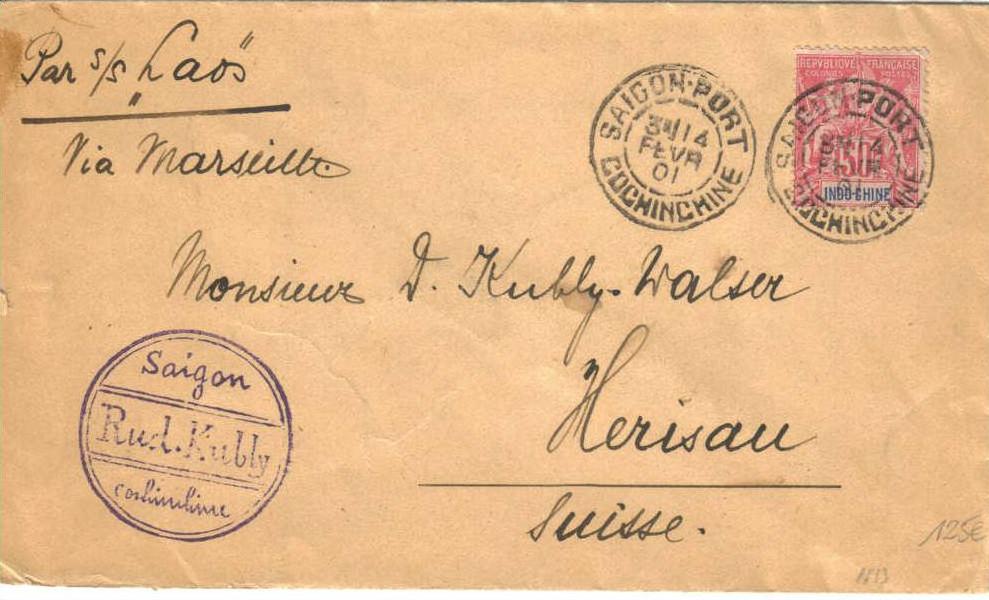 Par s/s "Laos"
Via Marseille.
SAIGON-PORT
3E/14
FEVR
01
COCHINCHINE
REPUBLIQUE FRANÇAISE
COLONIES POSTES
50
INDO-CHINE
SAIGON-PORT
FEVR
01
COCHINCHINE
Monsieur D. Kubly-Walser
Herisau
Suisse.
Saigon
Rud. Kubly
Cochinchine
125€